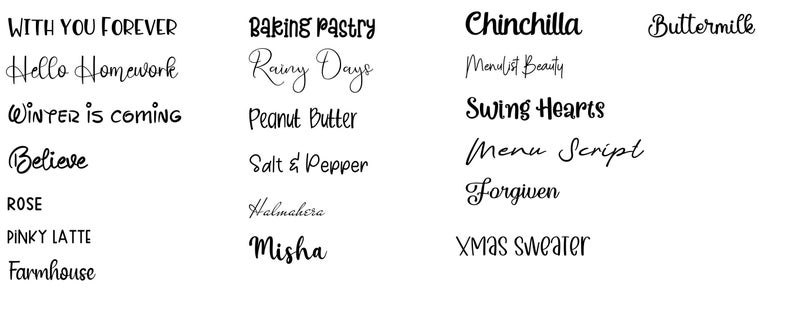 WITH YOU FOREVER
Hello Homework
WINTER IS COMING
Believe
ROSE
PINKY LATTE
Farmhouse
Baking Pastry
Rainy Days
Peanut Butter
Salt & Pepper
Halmahera
Misha
Chinchilla
MenuList Beauty
Swing Hearts
Menu Script
Forgiven
XMas sweater
Buttermilk